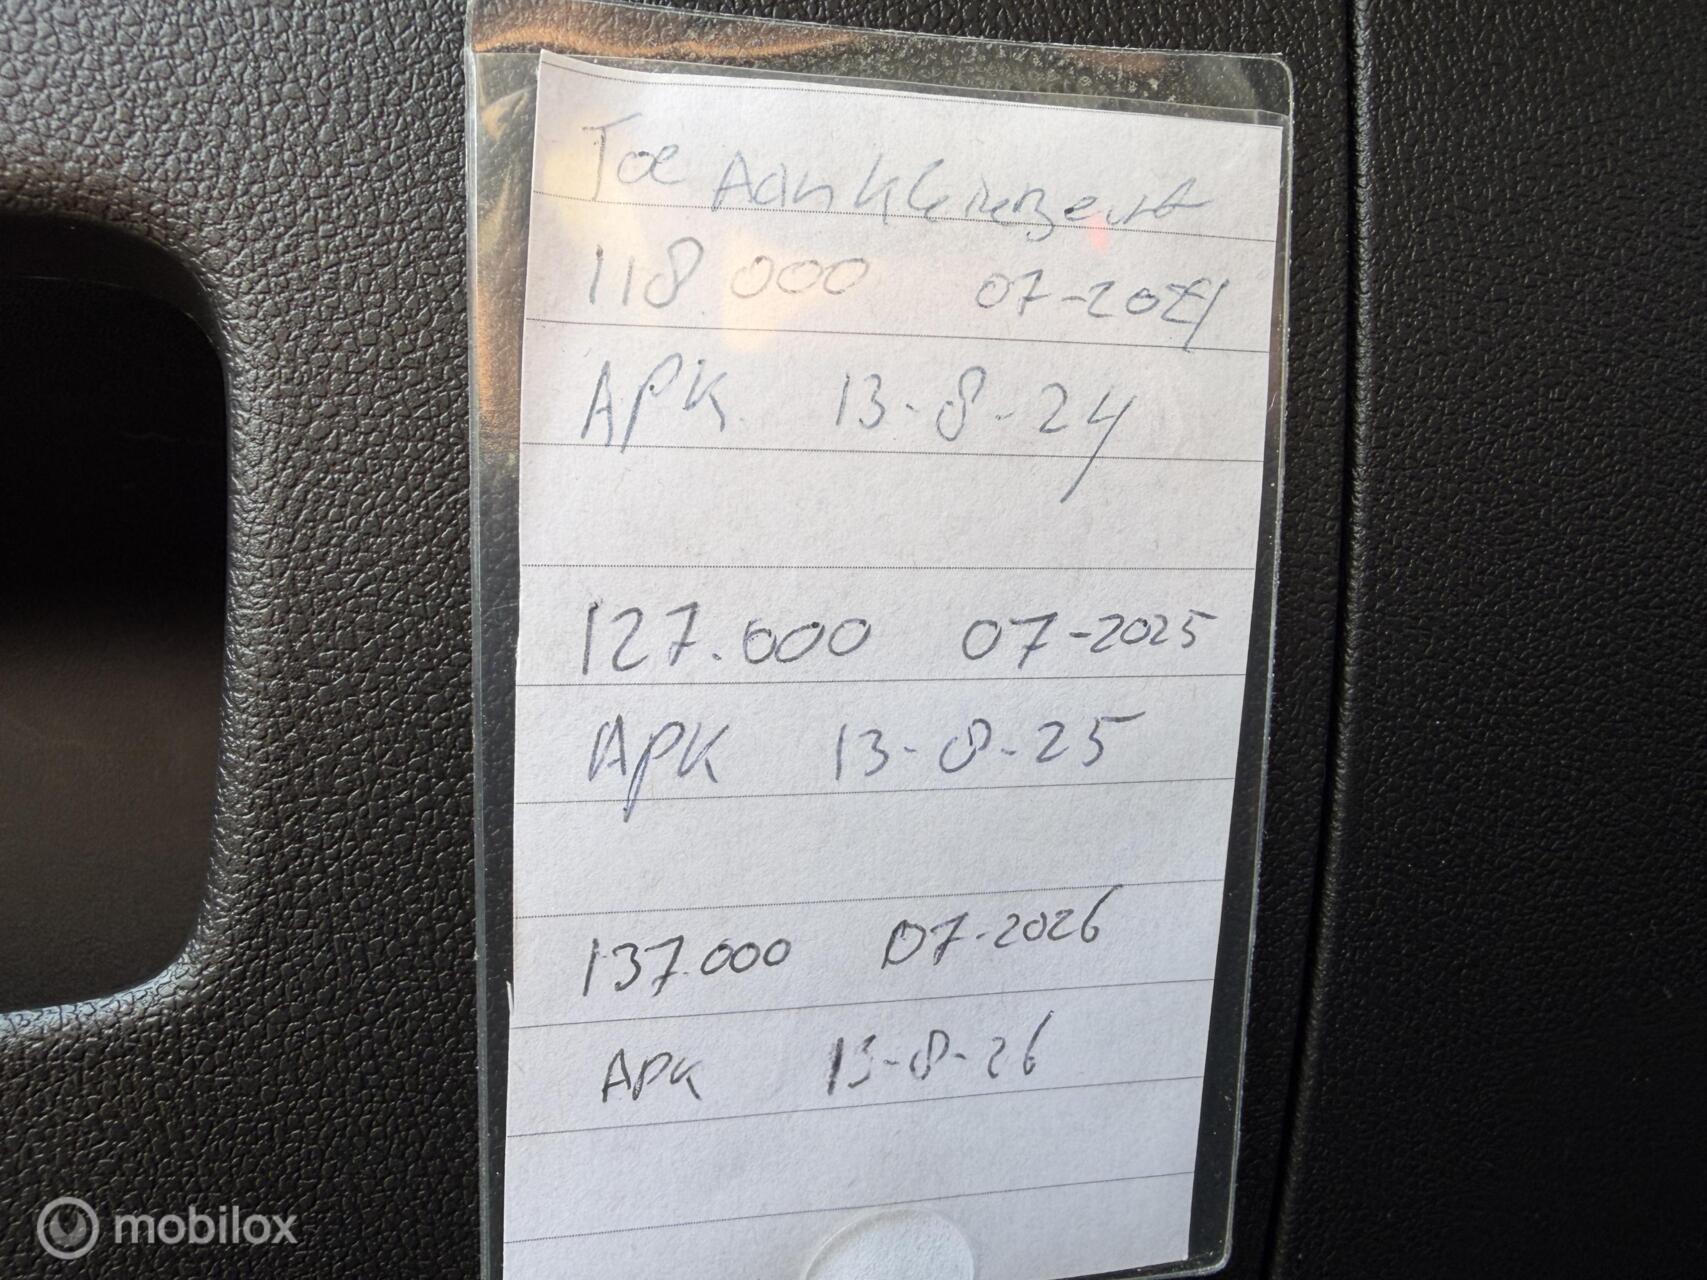 Toe Aan kleinbeurt
118.000 07-2024
APK. 13-8-24
127.000 07-2025
APK 13-8-25
137.000 07-2026
APK 13-8-26
mobilox